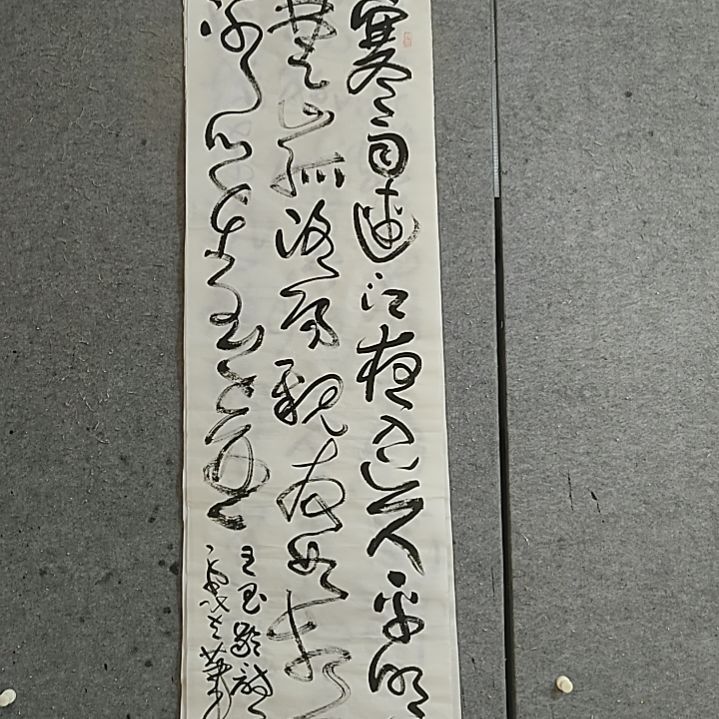 寒雨連江夜入吳平明
楚山孤洛陽親友如相
冰心在玉壺
王昌齡詩